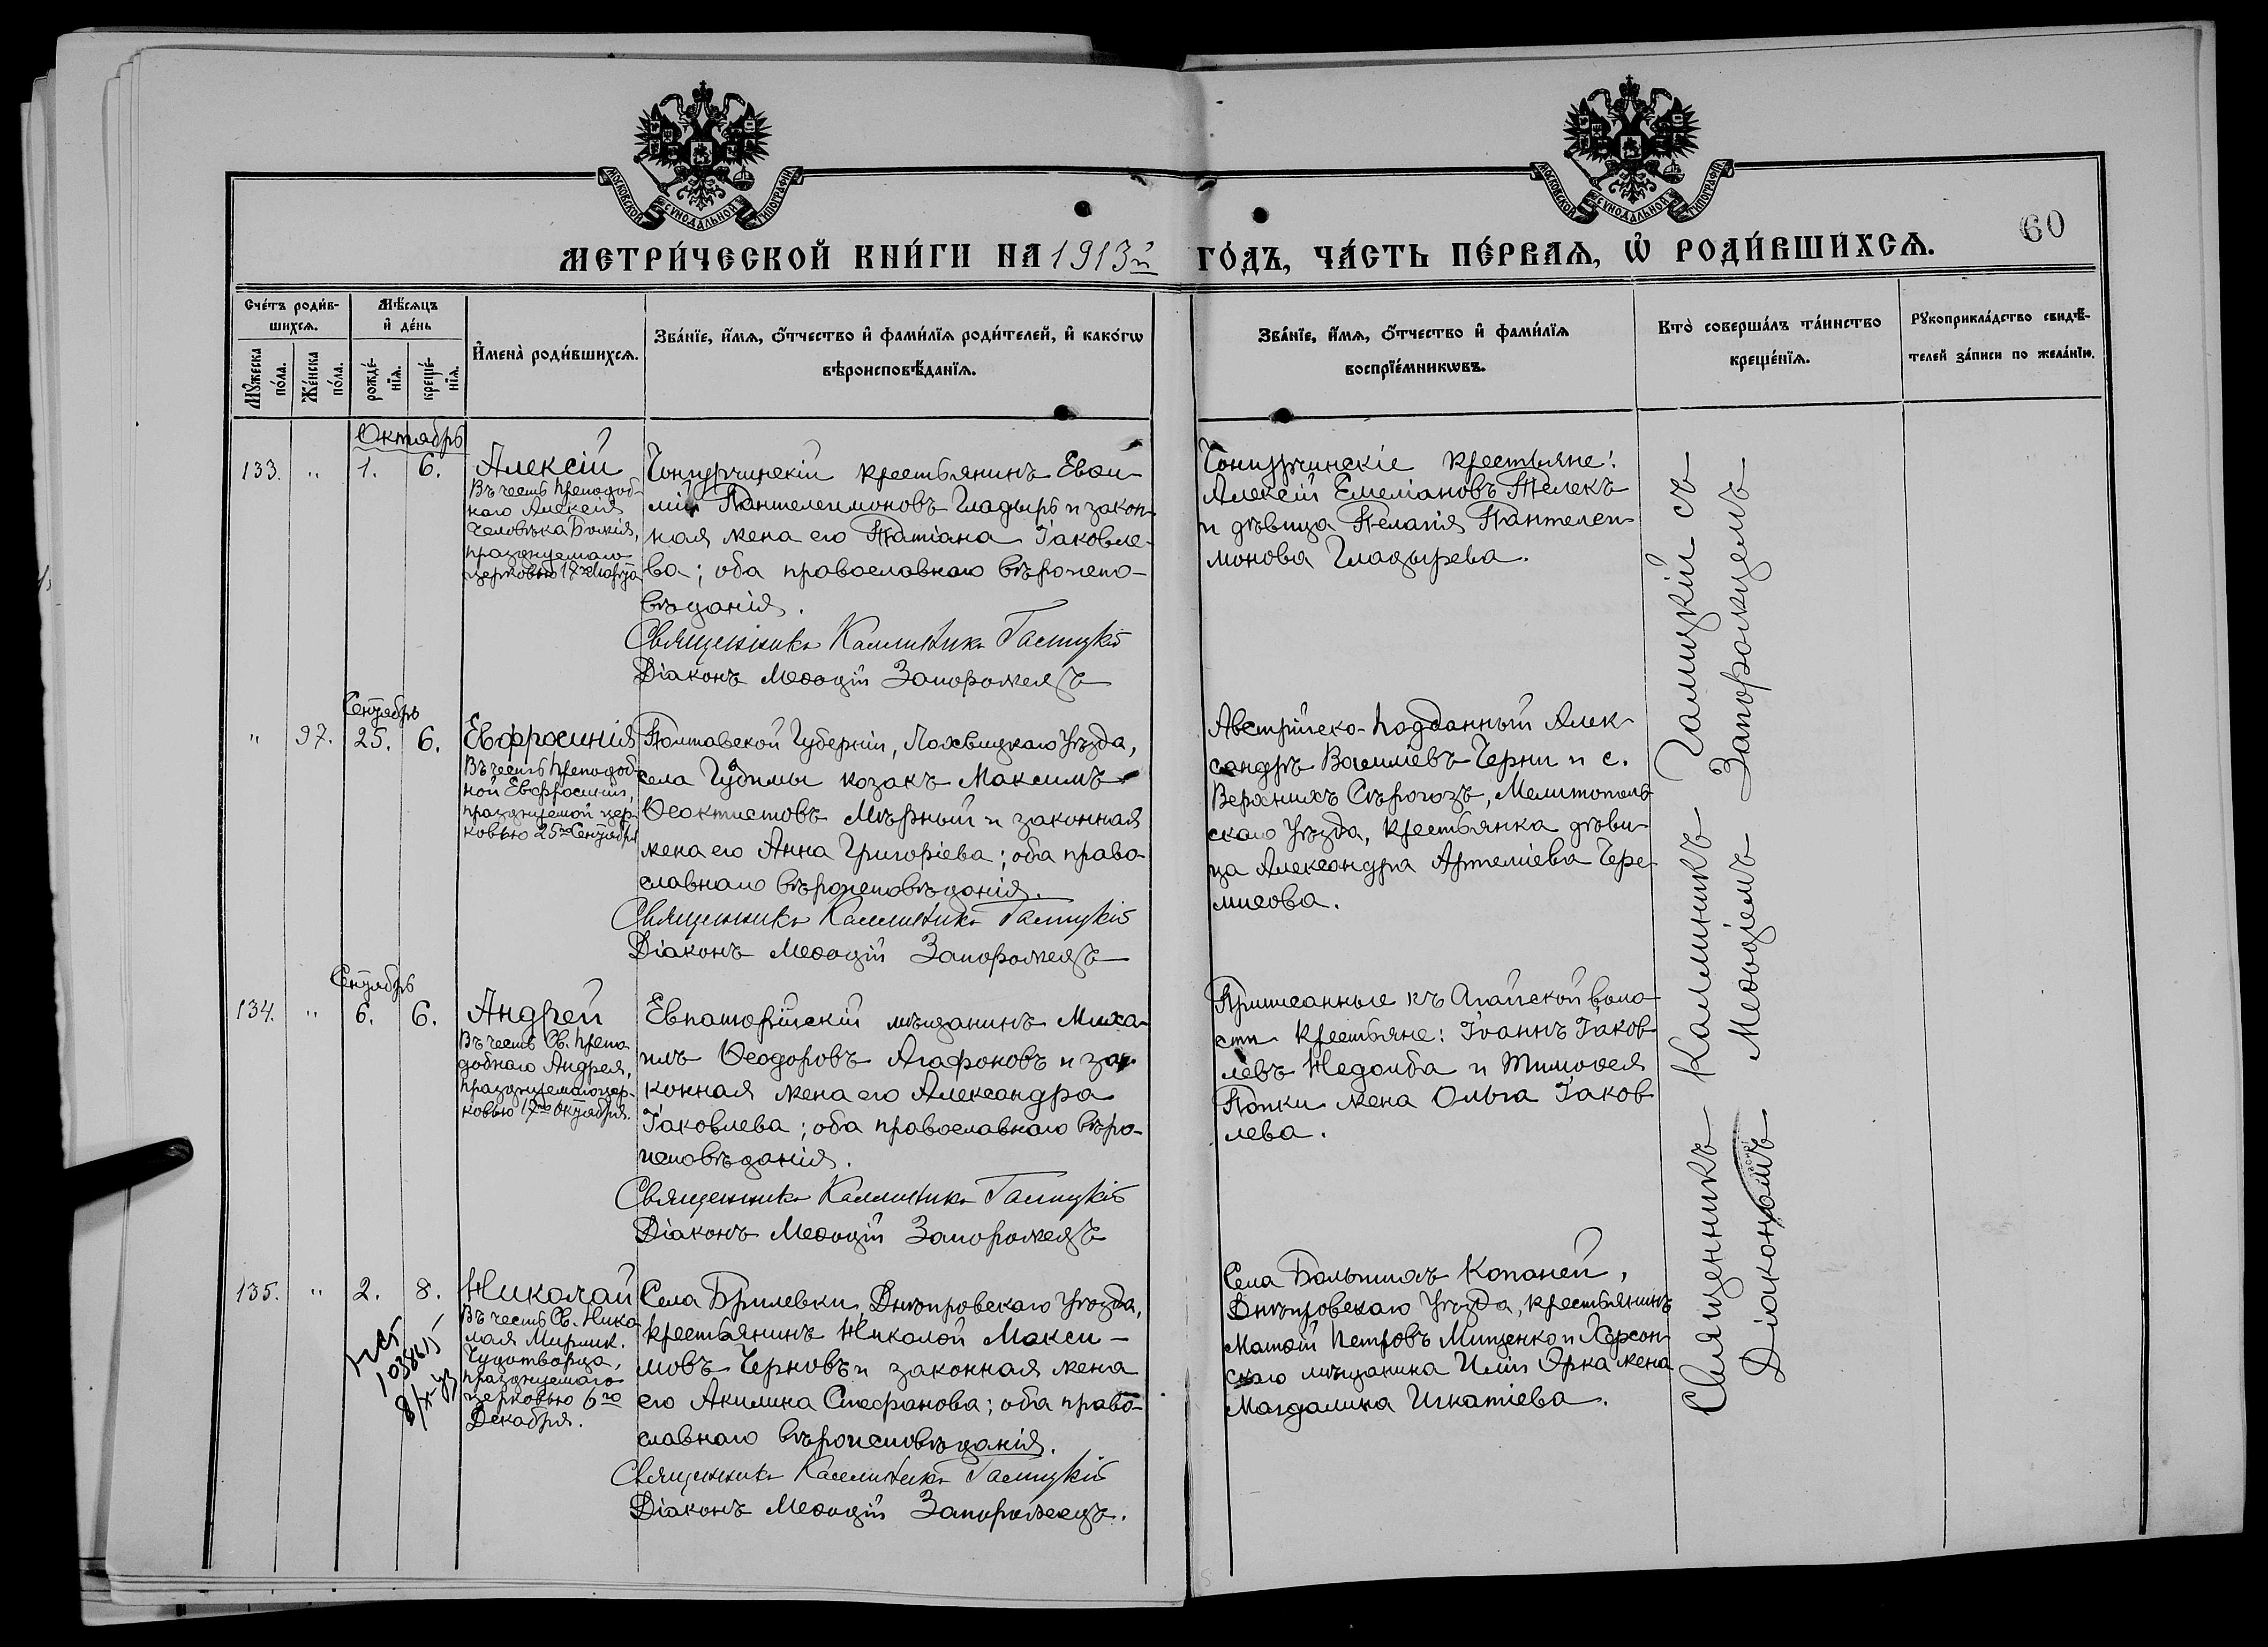 МОСКОВСКОЙ СУНОДАЛЬНОЙ ТИПОГРАФІИ
МОСКОВСКОЙ СУНОДАЛЬНОЙ ТИПОГРАФІИ
60
МЕТРИ́ЧЕСКОЙ КНИ́ГИ НА 1913й ГО́ДЪ, ЧА́СТЬ ПЕ́РВАѦ, Ѽ РОДИ́ВШИХСѦ.
Сче́тъ роди́в-
шихсѧ.
Мꙋ́жеска
по́ла.
Же́нска
по́ла.
Мѣ́сѧцъ
и҆ де́нь
рожде́-
нїѧ.
креще́-
нїѧ.
И҆мена̀ роди́вшихсѧ.
Зва́нїе, и҆́мѧ, ѻ҆́тчество и҆ фами́лїѧ роди́телей, и҆ како́гѡ
вѣроисповѣ́данїѧ.
Зва́нїе, и҆́мѧ, ѻ҆́тчество и҆ фами́лїѧ
воспрїе́мникѡвъ.
Кто̀ соверша́лъ та́инство
креще́нїѧ.
Рꙋкоприкла́дство свидѣ́-
телей за́писи по жела́нїю.
Октябрь
133. " 1. 6.
Алексій
Въ честь преподоб-
наго Алексія
Человѣка Божія,
празднуемаго
церковью 17го Марта
Чонгурчинскій крестьянинъ Евѳи-
мій Пантелеимоновъ Гладырь и закон-
ная жена его Татіана Іаковле-
ва; оба православнаго вѣроиспо-
вѣданія.
Священникъ Каллиникъ Галицкій
Діаконъ Меѳодій Запорожецъ
Чонгурчинскіе крестьяне:
Алексій Емеліановъ Телекъ
и дѣвица Пелагія Пантелеи-
монова Гладырева.
Сентябрь
" 97. 25. 6.
Евфросинія
Въ честь преподоб-
ной Евфросиніи,
празднуемой цер-
ковью 25го Сентября
Полтавской Губерніи, Лохвицкаго Уѣзда,
села Гудимы козакъ Максимъ
Ѳеоктистовъ Мѣрный и законная
жена его Анна Григоріева; оба право-
славнаго вѣроисповѣданія.
Священникъ Каллиникъ Галицкій
Діаконъ Меѳодій Запорожецъ
Австрійско-подданный Алек-
сандръ Василіевъ Черни и с.
Верхнихъ Сѣрогозъ, Мелитополь-
скаго Уѣзда, крестьянка дѣви-
ца Александра Артеміева Чере-
мисова.
Сентябрь
134. " 6. 6.
Андрей
Въ честь Св. препо-
добнаго Андрея,
празднуемаго цер-
ковью 17го Октября.
Евпаторійскій мѣщанинъ Миха-
илъ Ѳеодоровъ Агафоновъ и за-
конная жена его Александра
Іаковлева; оба православнаго вѣро-
исповѣданія.
Священникъ Каллиникъ Галицкій
Діаконъ Меѳодій Запорожецъ
Приписанные къ Агайской воло-
сти крестьяне: Іоаннъ Іаков-
левъ Недолба и Тимоѳея
Попки жена Ольга Іаков-
лева.
135. " 2. 8.
1038615
Николай
Въ честь Св. Нико-
лая Мирлик.
Чудотворца,
празднуемаго
церковью 6го
Декабря.
Села Брилевки, Днѣпровскаго Уѣзда,
крестьянинъ Николай Макси-
мовъ Черновъ и законная жена
его Акилина Стефанова; оба право-
славнаго вѣроисповѣданія.
Священникъ Каллиникъ Галицкій
Діаконъ Меѳодій Запорожецъ.
Села Большихъ Копаней,
Днѣпровскаго Уѣзда, крестьянинъ
Матѳій Петровъ Мищенко и Херсон-
скаго мѣщанина Иліи Ярка жена
Магдалина Игнатіева.
Священникъ Каллиникъ Галицкій съ
Діакономъ Меѳодіемъ Запорожцемъ